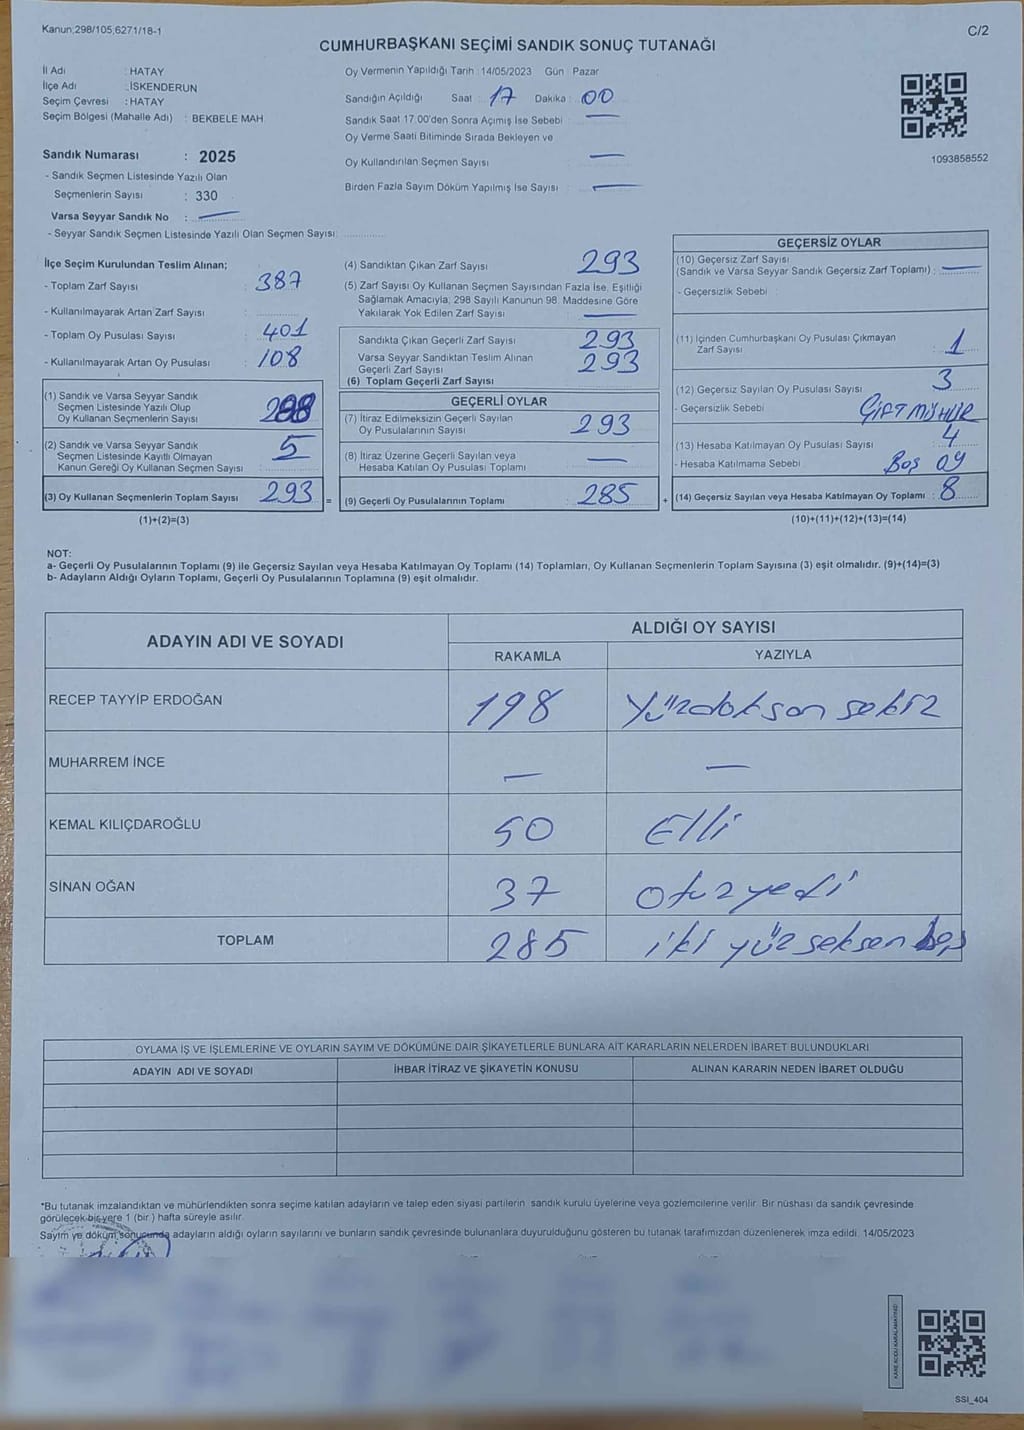 Kanun,298/105,6271/18-1
C/2
CUMHURBAŞKANI SEÇİMİ SANDIK SONUÇ TUTANAĞI
İl Adı : HATAY
İlçe Adı : İSKENDERUN
Seçim Çevresi : HATAY
Seçim Bölgesi (Mahalle Adı) : BEKBELE MAH.
Sandık Numarası : 2025
- Sandık Seçmen Listesinde Yazılı Olan
Seçmenlerin Sayısı : 330
Varsa Seyyar Sandık No : —
- Seyyar Sandık Seçmen Listesinde Yazılı Olan Seçmen Sayısı:
Oy Vermenin Yapıldığı Tarih : 14/05/2023 Gün : Pazar
Sandığın Açıldığı Saat : 17 Dakika : 00
Sandık Saat 17.00'den Sonra Açımış İse Sebebi : —
Oy Verme Saati Bitiminde Sırada Bekleyen ve
Oy Kullandırılan Seçmen Sayısı : —
Birden Fazla Sayım Döküm Yapılmış İse Sayısı : —
1093858552
İlçe Seçim Kurulundan Teslim Alınan;
- Toplam Zarf Sayısı : 387
- Kullanılmayarak Artan Zarf Sayısı :
- Toplam Oy Pusulası Sayısı : 401
- Kullanılmayarak Artan Oy Pusulası : 108
(1) Sandık ve Varsa Seyyar Sandık
Seçmen Listesinde Yazılı Olup
Oy Kullanan Seçmenlerin Sayısı
(2) Sandık ve Varsa Seyyar Sandık
Seçmen Listesinde Kayıtlı Olmayan
Kanun Gereği Oy Kullanan Seçmen Sayısı : 5
(3) Oy Kullanan Seçmenlerin Toplam Sayısı : 293 =
(1)+(2)=(3)
(4) Sandıktan Çıkan Zarf Sayısı : 293
(5) Zarf Sayısı Oy Kullanan Seçmen Sayısından Fazla İse, Eşitliği
Sağlamak Amacıyla; 298 Sayılı Kanunun 98. Maddesine Göre
Yakılarak Yok Edilen Zarf Sayısı : —
Sandıkta Çıkan Geçerli Zarf Sayısı : 293
Varsa Seyyar Sandıktan Teslim Alınan
Geçerli Zarf Sayısı : 293
(6) Toplam Geçerli Zarf Sayısı
GEÇERLİ OYLAR
(7) İtiraz Edilmeksizin Geçerli Sayılan
Oy Pusulalarının Sayısı : 293
(8) İtiraz Üzerine Geçerli Sayılan veya
Hesaba Katılan Oy Pusulası Toplamı : —
(9) Geçerli Oy Pusulalarının Toplamı : 285 +
GEÇERSİZ OYLAR
(10) Geçersiz Zarf Sayısı
(Sandık ve Varsa Seyyar Sandık Geçersiz Zarf Toplamı) : —
- Geçersizlik Sebebi :
(11) İçinden Cumhurbaşkanı Oy Pusulası Çıkmayan
Zarf Sayısı : 1
(12) Geçersiz Sayılan Oy Pusulası Sayısı : 3
- Geçersizlik Sebebi : ÇİFT MÜHÜR
(13) Hesaba Katılmayan Oy Pusulası Sayısı : 4
- Hesaba Katılmama Sebebi : Boş oy
(14) Geçersiz Sayılan veya Hesaba Katılmayan Oy Toplamı : 8
(10)+(11)+(12)+(13)=(14)
NOT:
a- Geçerli Oy Pusulalarının Toplamı (9) ile Geçersiz Sayılan veya Hesaba Katılmayan Oy Toplamı (14) Toplamları, Oy Kullanan Seçmenlerin Toplam Sayısına (3) eşit olmalıdır. (9)+(14)=(3)
b- Adayların Aldığı Oyların Toplamı, Geçerli Oy Pusulalarının Toplamına (9) eşit olmalıdır.
ADAYIN ADI VE SOYADI
ALDIĞI OY SAYISI
RAKAMLA YAZIYLA
RECEP TAYYİP ERDOĞAN 198 Yüzdoksan sekiz
MUHARREM İNCE — —
KEMAL KILIÇDAROĞLU 50 Elli
SİNAN OĞAN 37 Otuzyedi
TOPLAM 285 iki yüz seksen beş
OYLAMA İŞ VE İŞLEMLERİNE VE OYLARIN SAYIM VE DÖKÜMÜNE DAİR ŞİKAYETLERLE BUNLARA AİT KARARLARIN NELERDEN İBARET BULUNDUKLARI
ADAYIN ADI VE SOYADI İHBAR İTİRAZ VE ŞİKAYETİN KONUSU ALINAN KARARIN NEDEN İBARET OLDUĞU
*Bu tutanak imzalandıktan ve mühürlendikten sonra seçime katılan adayların ve talep eden siyasi partilerin sandık kurulu üyelerine veya gözlemcilerine verilir. Bir nüshası da sandık çevresinde
görülecek bir yere 1 (bir ) hafta süreyle asılır.
Sayım ve döküm sonucunda adayların aldığı oyların sayılarını ve bunların sandık çevresinde bulunanlara duyurulduğunu gösteren bu tutanak tarafımızdan düzenlenerek imza edildi. 14/05/2023
KARE KODU KARALAMAYINIZ!
SSI_404